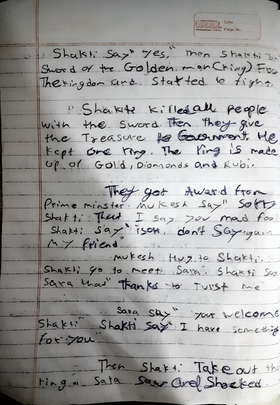 Shakti Say" Yes," Then Shakti
Sword of the Golden man (king) From
The kingdom and Started to fight.
" Shakti killed all people
with the sword Then they give
the Treasure to Government. He
kept One ring. The ring is made
up of Gold, Diomonds and Rubi.
They got Award from
Prime minster. mukesh say" Sorry
Shakti. That I say you mad fool
Shakti say" isok. don't Say again
my friend.
mukesh Hug to Shakti.
Shakti go to meet Sara. Shakti say
Sara that" thanks to Turst me"
Sara say" your welcome
Shakti" Shakti Say" I have something
For you"
Then Shakti Take out the
ring Sara Saw and Shocked